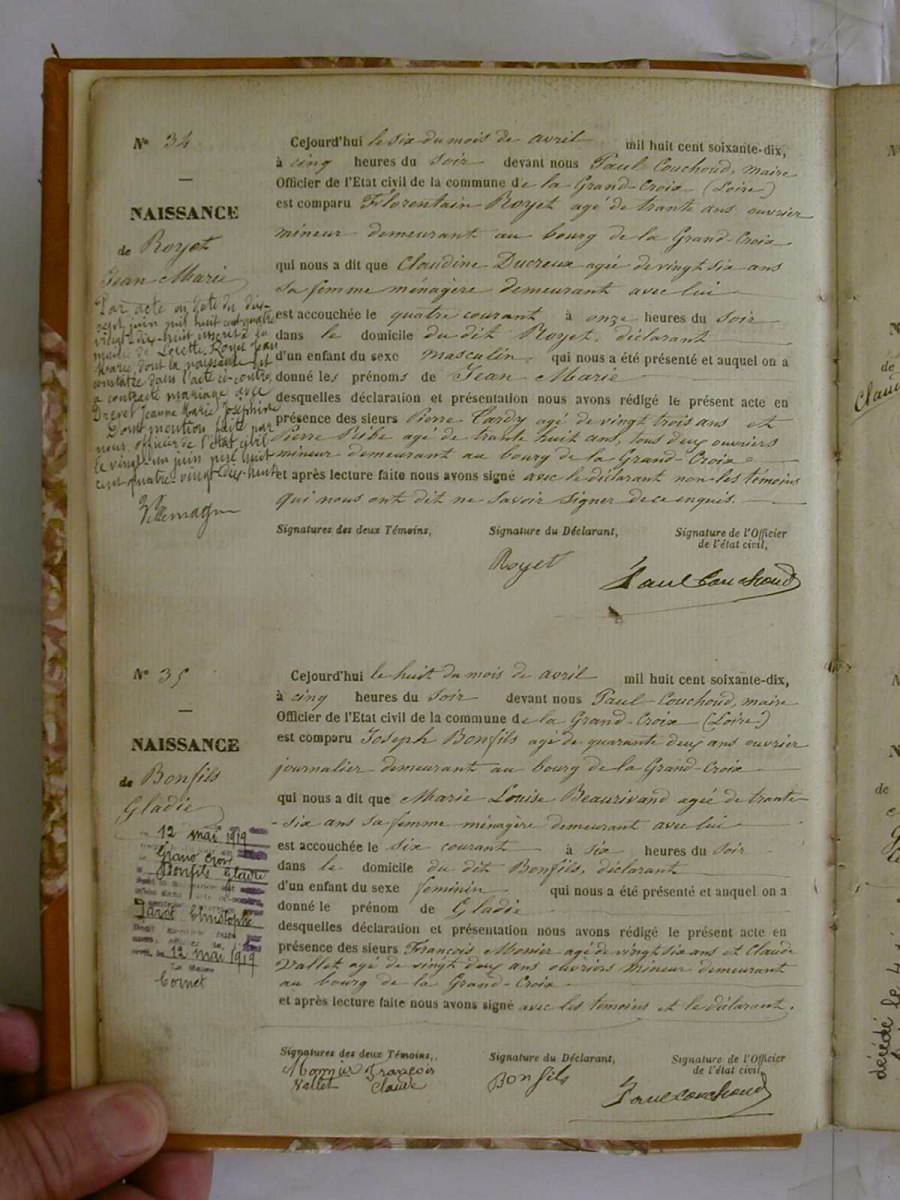 N° 34
NAISSANCE
de Royet
Jean Marie
Par acte en date du dix-
sept juin mil huit cent quatre
vingt dix-huit inscrit à la
mairie de Lorette, Royet Jean
Marie, dont la naissance est
constatée dans l'acte ci-contre,
a contracté mariage avec
Drevet Jeanne Marie Joséphine
Dont mention faite par
nous officier de l'état civil
le vingt-un juin mil huit
cent quatre-vingt dix-huit
Cejourd'hui le six du mois de avril mil huit cent soixante-dix,
à cinq heures du soir devant nous Paul Couchoud, maire
Officier de l'Etat civil de la commune de la Grand-Croix (Loire)
est comparu Florentain Royet agé de trante ans ouvrier
mineur demeurant au bourg de la Grand-Croix
qui nous a dit que Claudine Ducreux agée de vingt six ans
sa femme ménagère demeurant avec lui
est accouchée le quatre courant à onze heures du soir
dans le domicile du dit Royet, déclarant
d'un enfant du sexe masculin qui nous a été présenté et auquel on a
donné les prénoms de Jean Marie
desquelles déclaration et présentation nous avons rédigé le présent acte en
présence des sieurs Pierre Cardy agé de vingt trois ans et
Pierre Ribe agé de trante huit ans, tous deux ouvriers
mineur demeurant au bourg de la Grand-Croix
et après lecture faite nous avons signé avec le déclarant non les témoins
qui nous ont dit ne savoir signer de ce enquis.
Signatures des deux Témoins, Signature du Déclarant, Signature de l'Officier
de l'état civil,
Royet
Paul Couchoud
N° 35
NAISSANCE
de Bonfils
Gladie
12 mai 1919
Grand Croix
Bonfils Claire
Christophe
12 mai 1919
Le Maire
Cornet
Cejourd'hui le huit du mois de avril mil huit cent soixante-dix,
à cinq heures du soir devant nous Paul Couchoud, maire
Officier de l'Etat civil de la commune de la Grand-Croix (Loire)
est comparu Joseph Bonfils agé de quarante deux ans ouvrier
journalier demeurant au bourg de la Grand-Croix
qui nous a dit que Marie Louise Beaurivand agée de trante
-six ans sa femme ménagère demeurant avec lui
est accouchée le six courant à six heures du soir
dans le domicile du dit Bonfils, déclarant
d'un enfant du sexe feminin qui nous a été présenté et auquel on a
donné le prénom de Gladie
desquelles déclaration et présentation nous avons rédigé le présent acte en
présence des sieurs François Monier agé de vingt six ans et Claude
Vallet agé de vingt deux ans ouvriers mineur demeurant
au bourg de la Grand-Croix
et après lecture faite nous avons signé avec les temoins et le déclarant.
Signatures des deux Témoins, Signature du Déclarant, Signature de l'Officier
de l'état civil,
Monier François
Vallet Claude
Bonfils
Paul Couchoud
décédé le